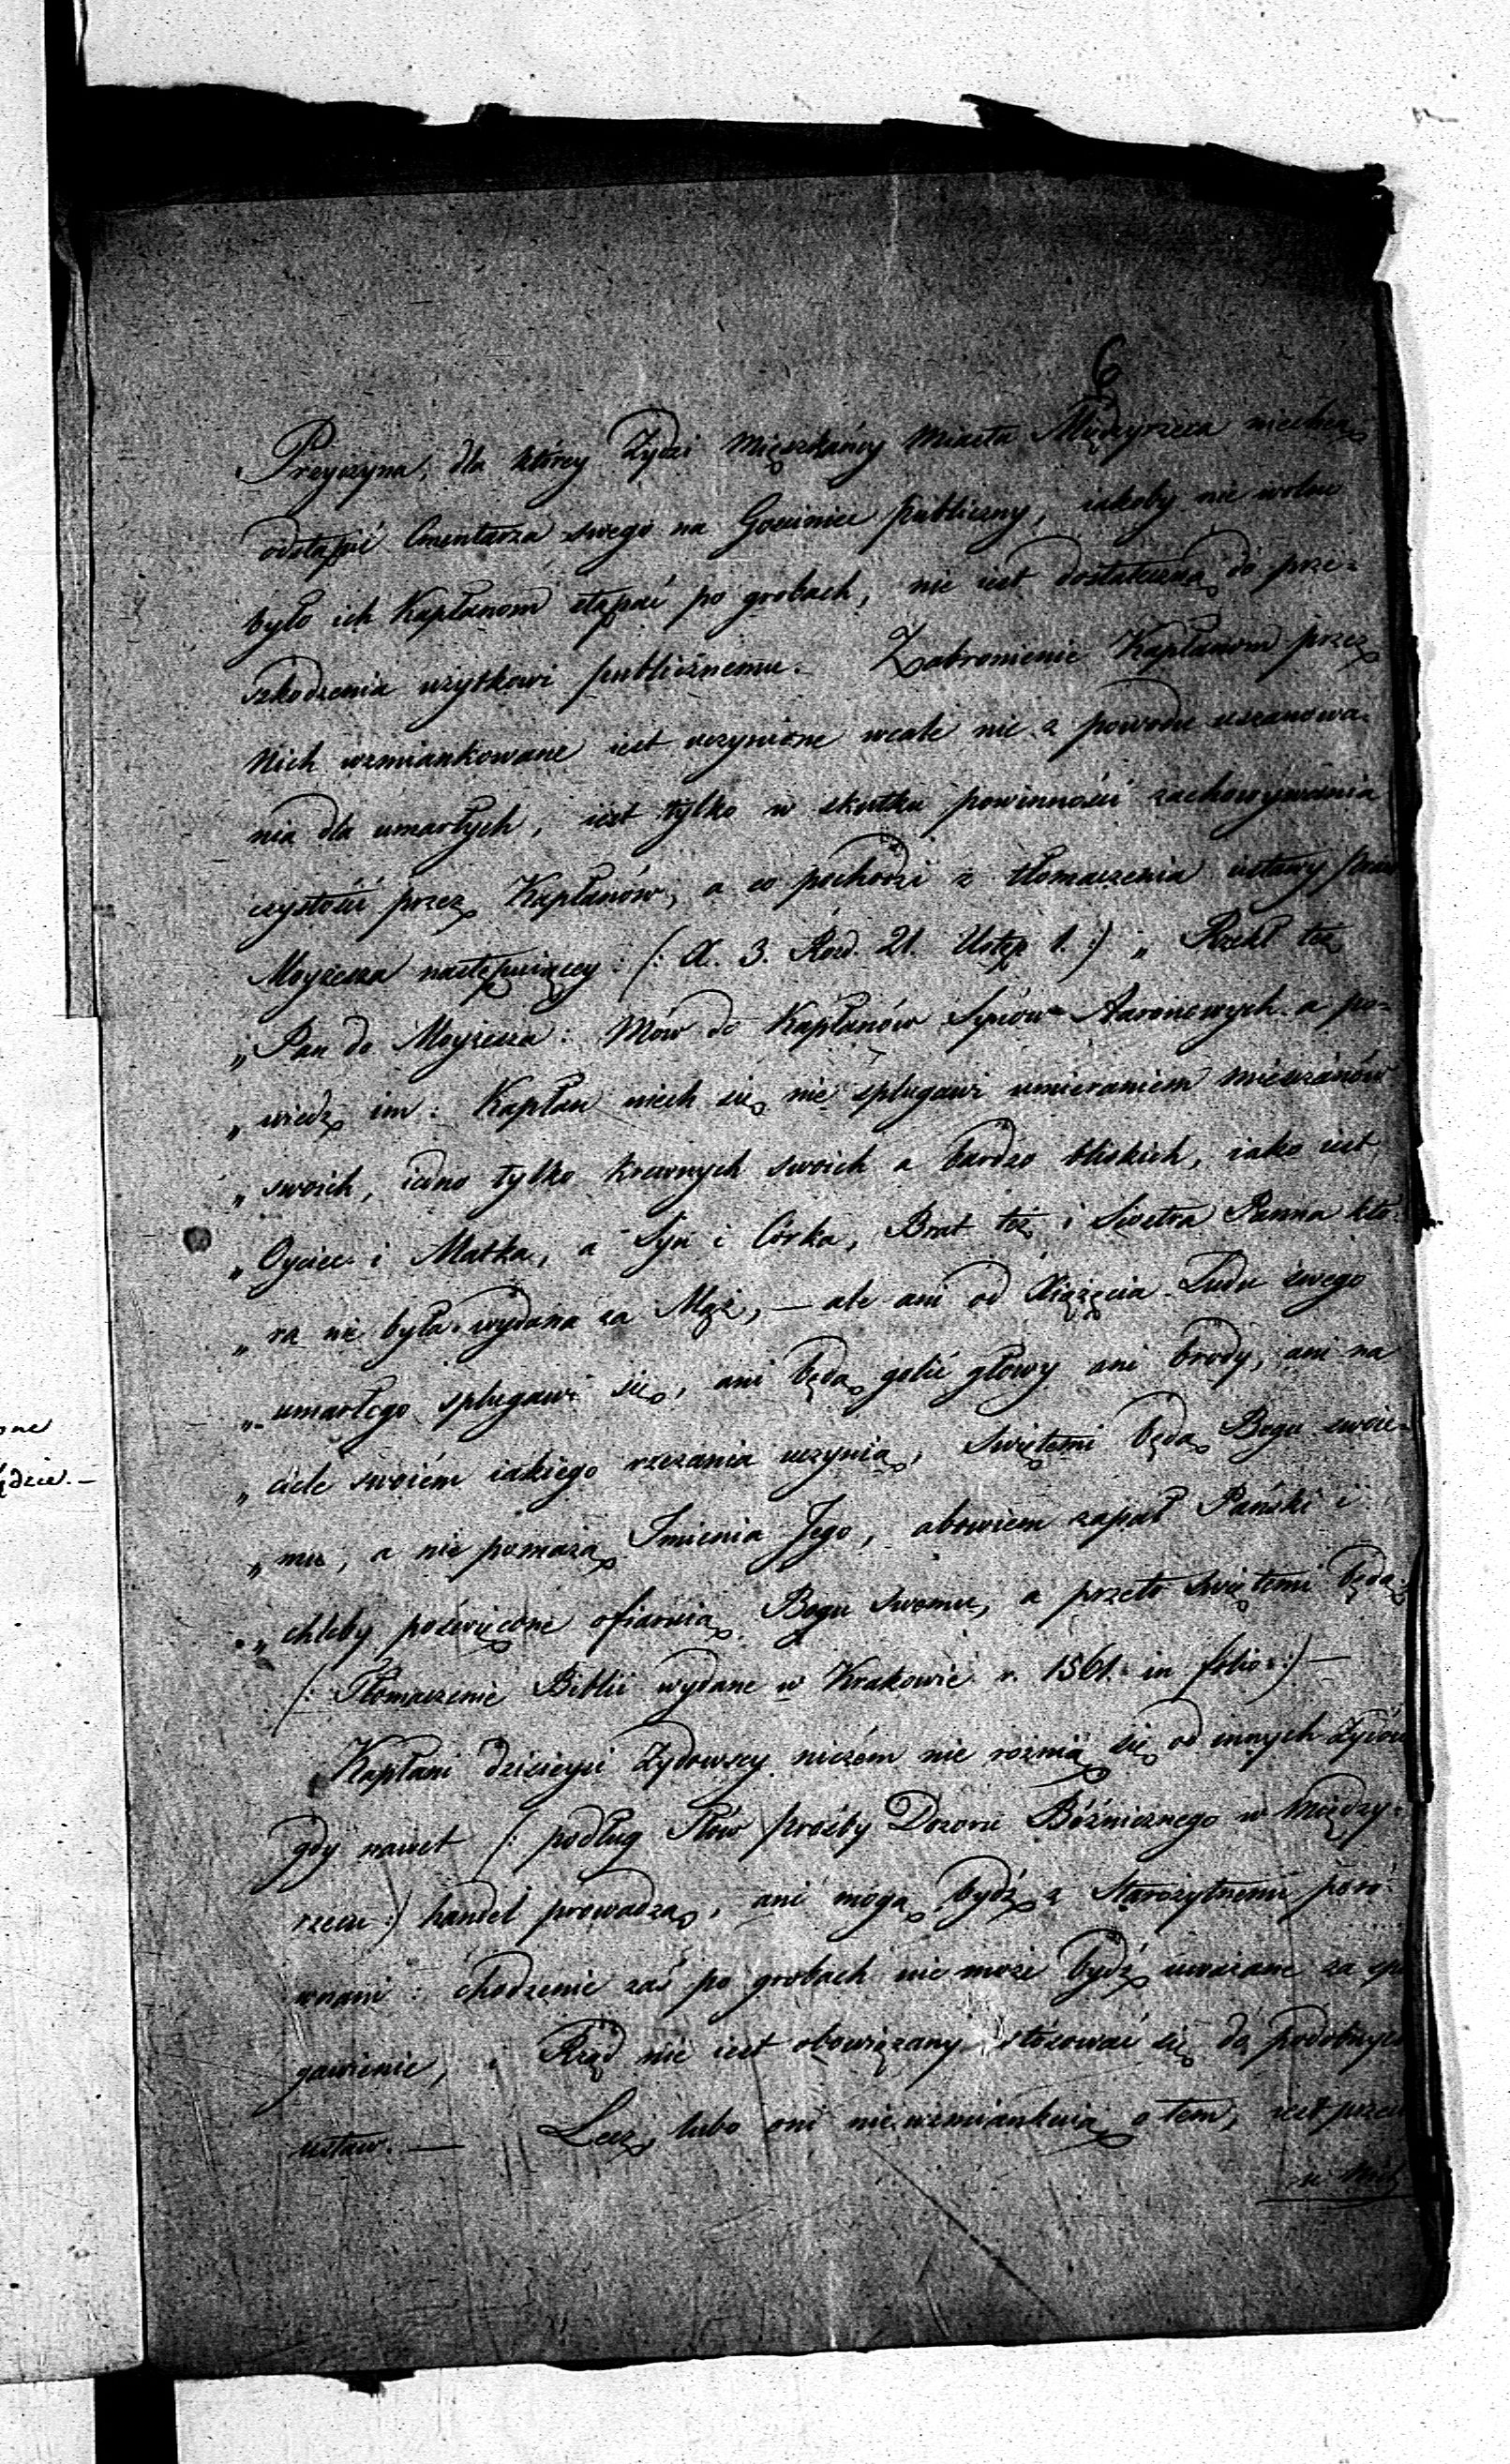 6
Przyczyna, dla którey Żydzi Mięszkańcy Miasta Międzyrzeca niechcą
odstąpić Cmentarza swego na Gościniec publiczny, iakoby nie wolno
było ich Kapłanom stąpać po grobach, nie iest dostateczną do prze=
szkodzenia użytkowi publicznemu. Zabronienie Kapłanom przez
Nich wzmiankowane iest uczynione wcale nie z powodu uszanowa=
nia dla umarłych, iest tylko w skutku powinności zachowywania
czystości przez Kapłanów, a co pochodzi z tłomaczenia ustawy
Moyżesza następuiącey: (: X. 3. Rozd. 21. Ustęp 1. :) „ Rzekł też
„ Pan do Moyżesza: Mów do Kapłanów Synów Aaronowych a po=
„ wiedz im: Kapłan niech się nie splugawi umieraniem mieszczanów
„ swoich, iedno tylko krewnych swoich a bardzo bliskich, iako iest
„ Oyciec i Matka, a Syn i Córka, Brat też i Siostra Panna któ=
„ ra nie była wydana za Mąż, — ale ani od Xiążęcia Ludu swego
„ umarłego splugawi się, ani będą golić głowy ani brody, ani na
„ ciele swoiém iakiego rzezania uczynią, Swiętemi będą Bogu swoie=
„ mu, a nie pomażą Imienia Jego, abowiem zapał Pański i
„ chleby poświęcone ofiaruią Bogu swemu, a przeto swiętemi będą
(: Tłomaczenie Biblii wydane w Krakowie r. 1561. in folio :) —
Kapłani dzisieysi Żydowscy niczém nie róznią się od innych Żydów
gdy nawet (: podług słów prośby Dozoru Bóźnicznego w Między=
rzecu :) handel prowadzą, ani mogą bydź z Starożytnemi poró=
wnani: chodzenie zaś po grobach nie może bydź uważane za splu
gawienie, i Rząd nie iest obowiązany stósować się do podobnych
ustaw. — Lecz, lubo oni nie wzmiankuią o tem, iest
u Nich
one
ędzie. —